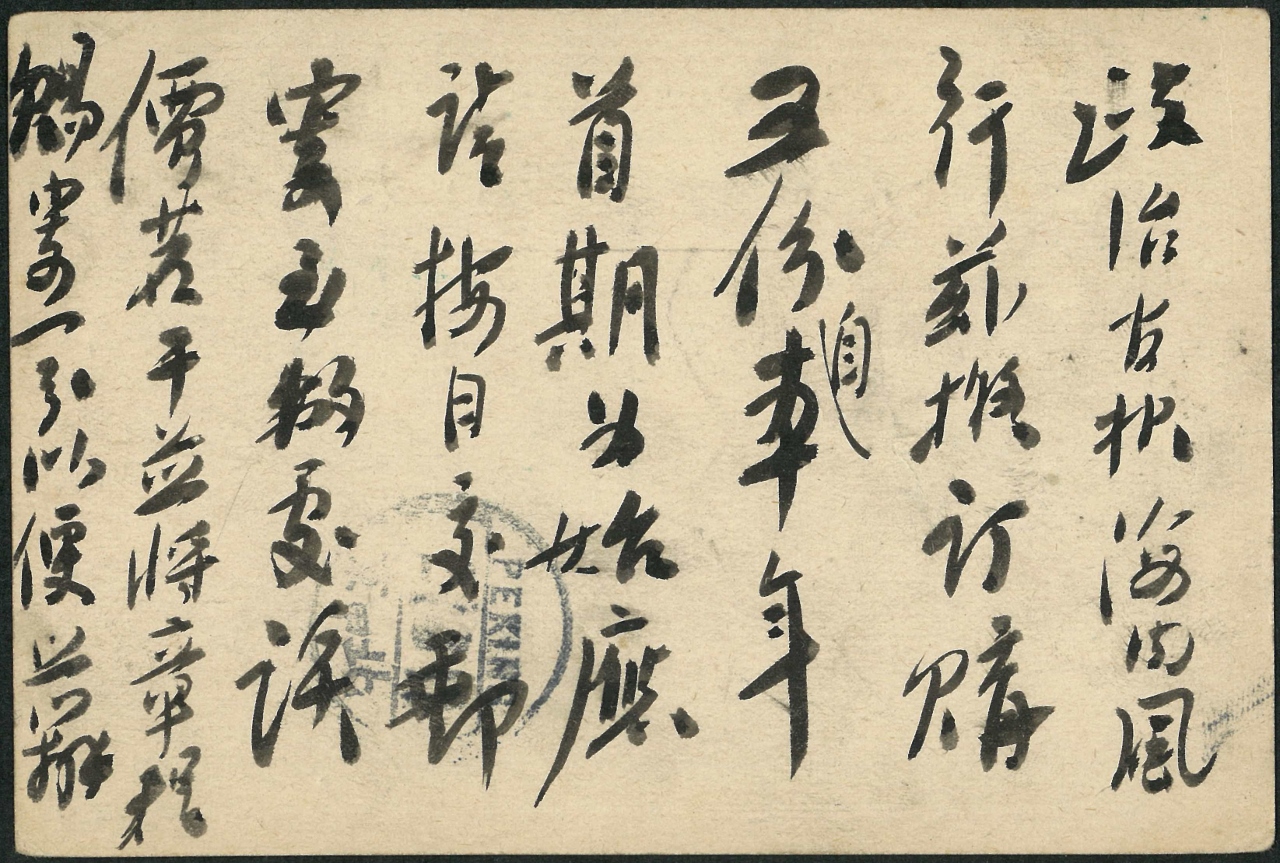 政治官報海内風
行茲擬訂購
五份自年
首期為始應
請按日交郵
寄至敝處該
價若干並將章程
賜寄一分以便照辦
PEKIN